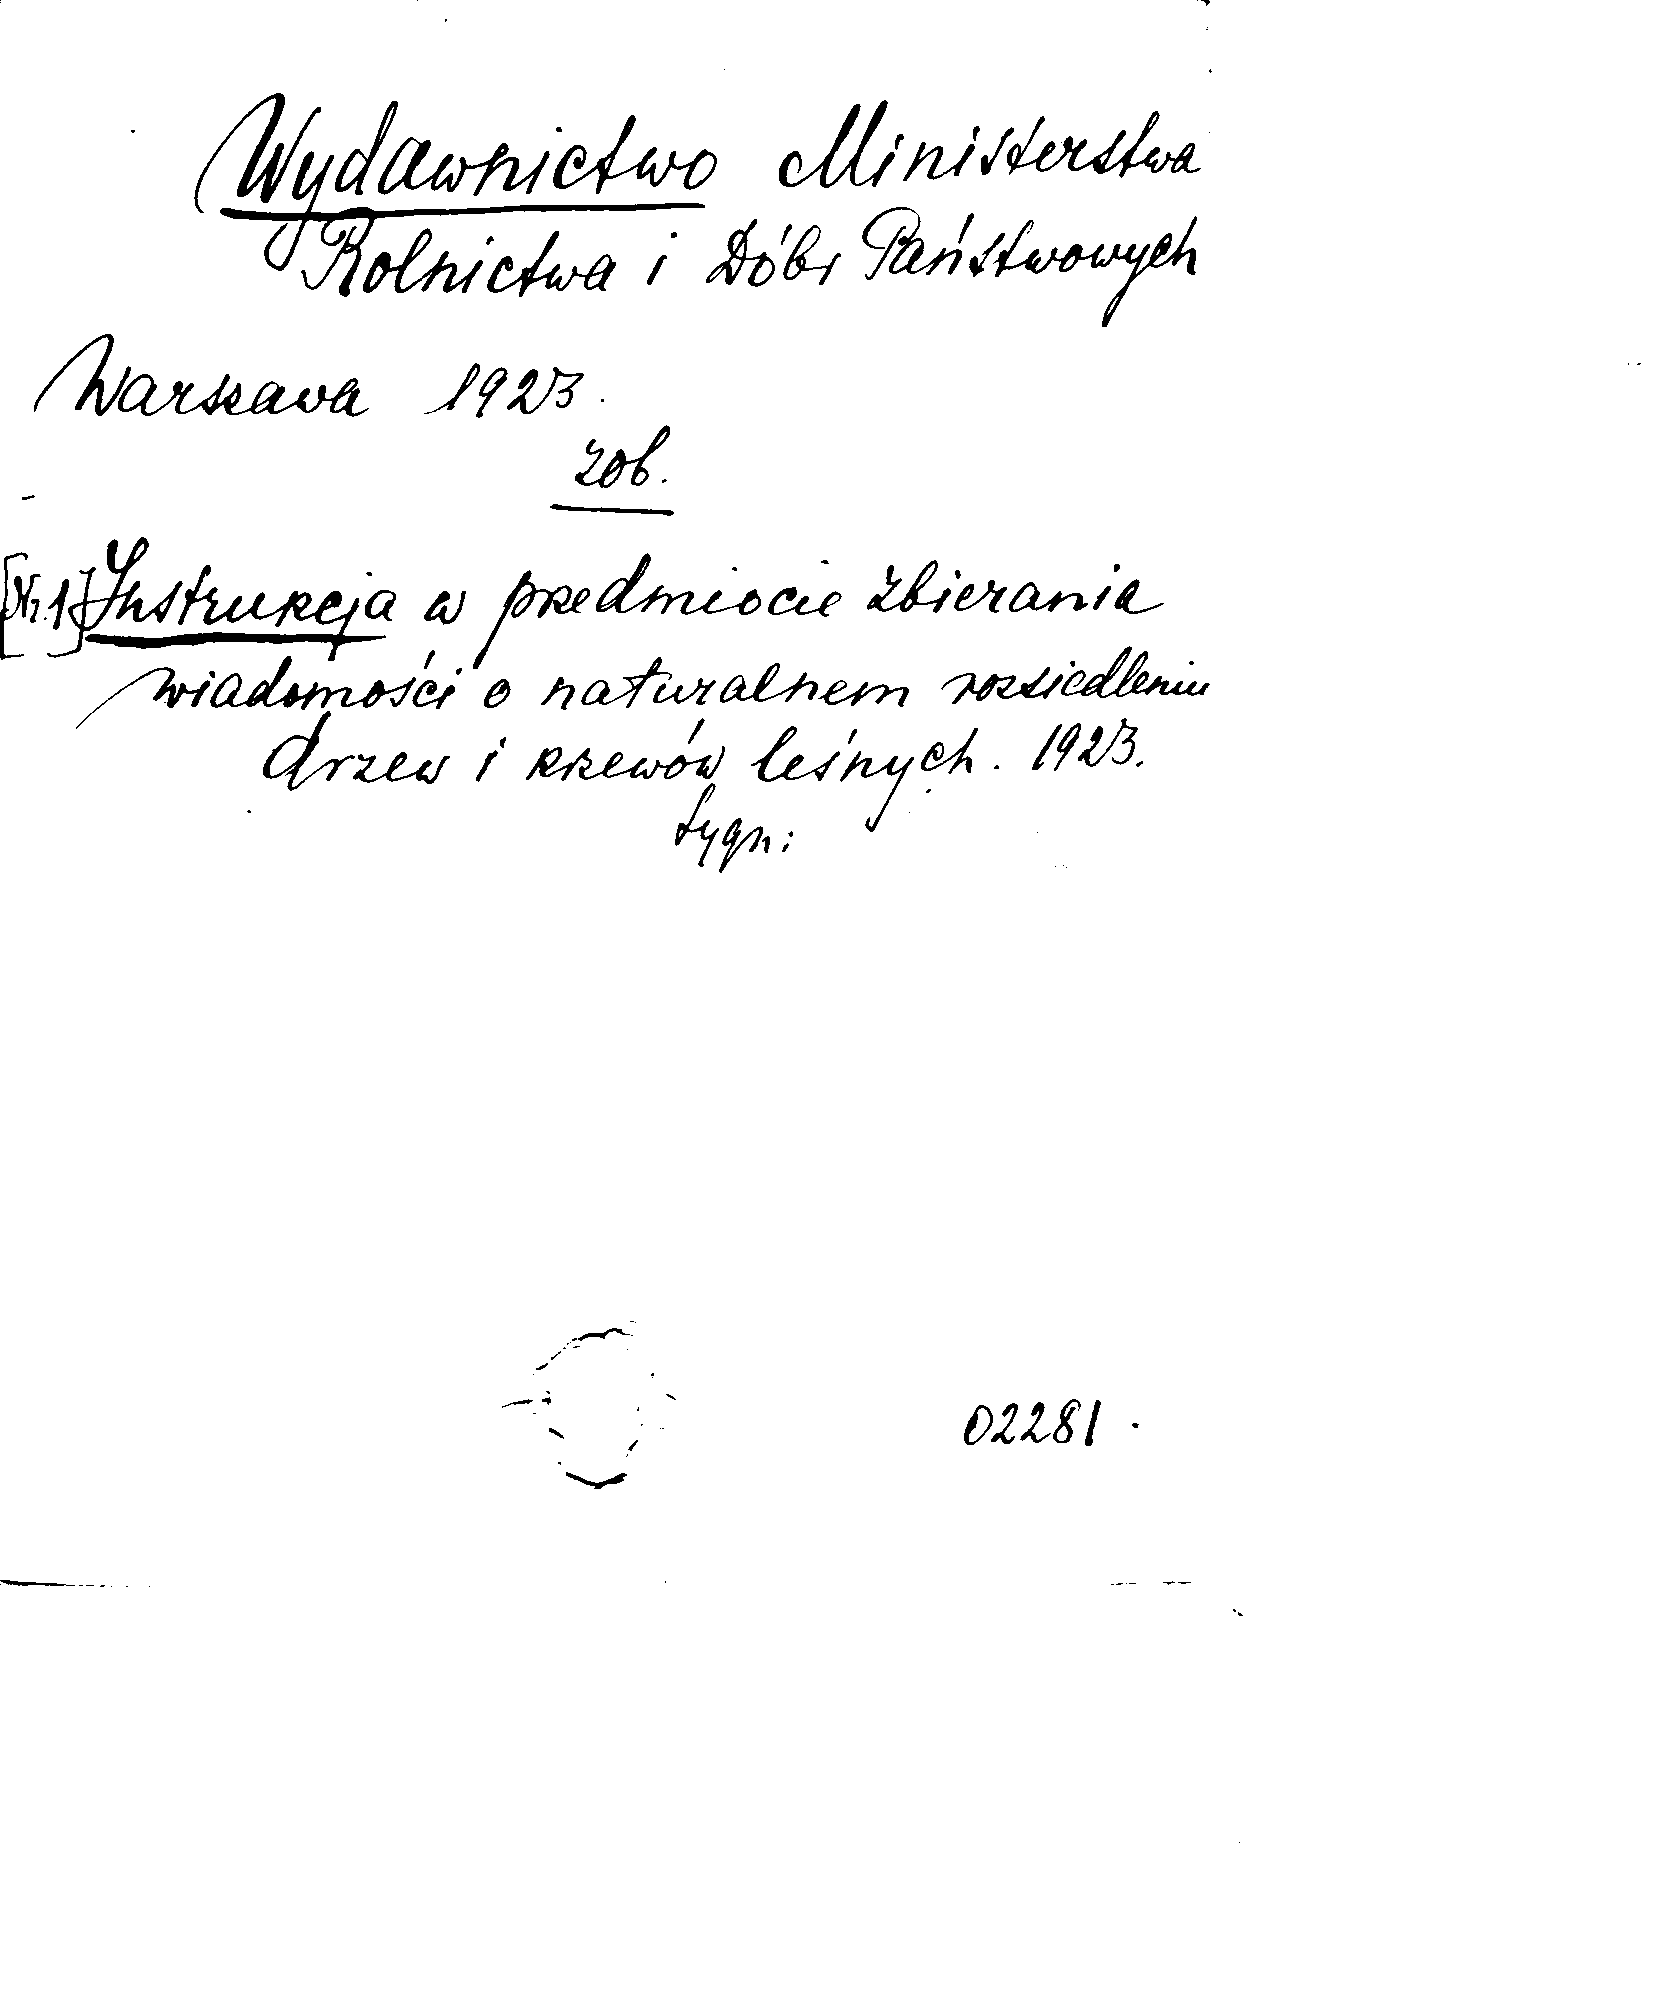 Wydawnictwo Ministerstwa
Rolnictwa i Dóbr Państwowych
Warszawa 1923.
zob.
[Nr. 1] Instrukcja w przedmiocie zbierania
wiadomości o naturalnem rozsiedleniu
drzew i krzewów leśnych. 1923.
Sygn:
02281